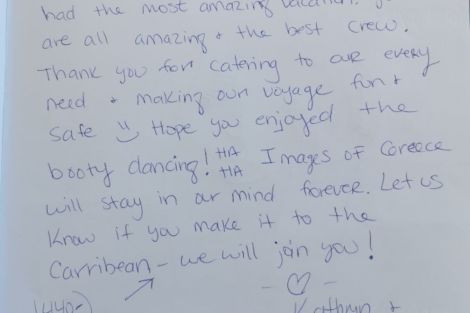 had the most amazing vacation.
are all amazing & the best crew.
Thank you for catering to our every
need & making our voyage fun &
safe :) Hope you enjoyed the
booty dancing! HA HA Images of Greece
will stay in our mind forever. Let us
know if you make it to the
Carribean - we will join you!
- ♡ -
Kathryn &